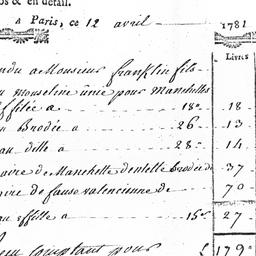 & en détail.
a Paris, ce 12 avril 1781
Livres
du a Monsieur franklin fils
mouseline unie pour Manchettes
effilée a 18s 18
Brodée a 26 13
au ditte a 28 14
aire de Manchette dentelle Brodée de 37
aire de fause valencienne de 70
au effillé a 15s 27
eçeu Comptant pour £ 179